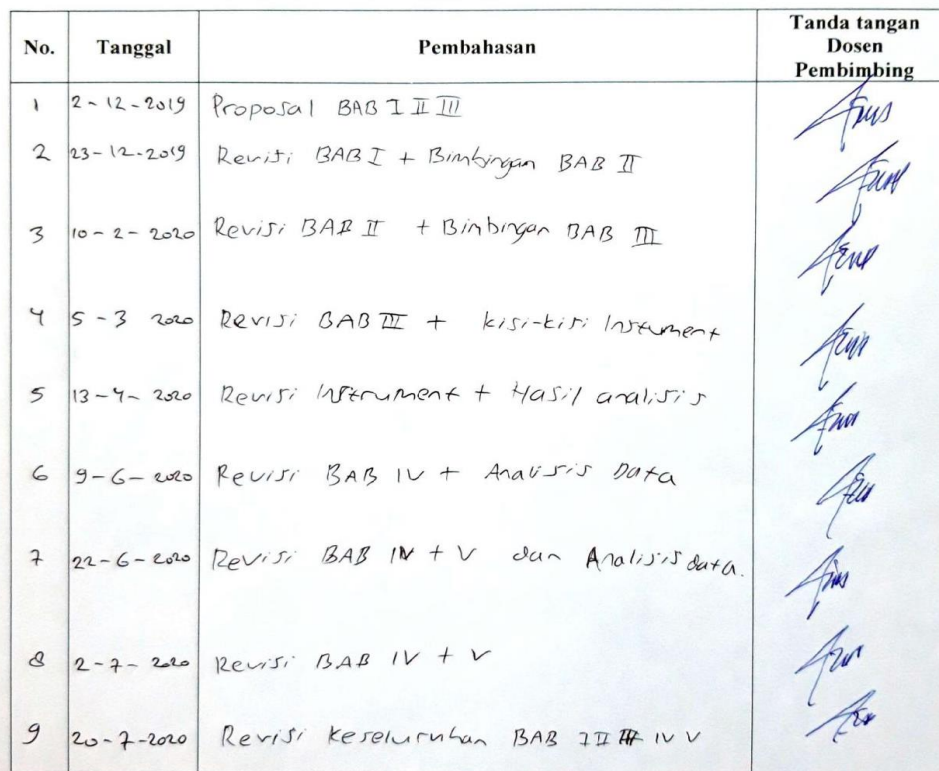 No. Tanggal Pembahasan Tanda tangan
Dosen
Pembimbing
1 2-12-2019 Proposal BAB I II III
2 23-12-2019 Revisi BAB I + Bimbingan BAB II
3 10-2-2020 Revisi BAB II + Bimbingan BAB III
4 5-3 2020 Revisi BAB III + kisi-kisi Instument
5 13-4-2020 Revisi Instrument + Hasil analisis
6 9-6-2020 Revisi BAB IV + Analisis Data
7 22-6-2020 Revisi BAB IV + V dan Analisis data.
8 2-7-2020 Revisi BAB IV + V
9 20-7-2020 Revisi Keseluruhan BAB I II III IV V